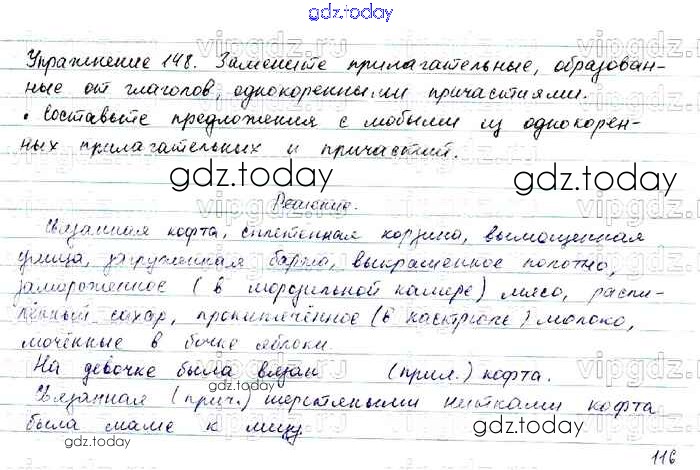 gdz.today
Упражнение 148. Замените прилагательные, образован-
ные от глаголов, однокоренными причастиями.
• Составьте предложения с любыми из однокорен-
ных прилагательных и причастий.
gdz.today
gdz.today
Решение.
Связанная кофта, сплетенная корзина, вымощенная
улица, загруженная баржа, выкрашенное полотно,
замороженное (в морозильной камере) мясо, распи-
ленный сахар, прокипячённое (в кастрюле) молоко,
мочённые в бочке яблоки.
На девочке была вязан (прил.) кофта.
gdz.today
Связанная (прич.) шерстяными нитками кофта
была маме к лицу
gdz.today
gdz.today
116